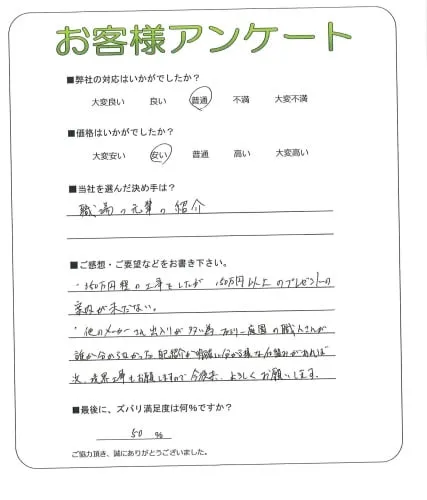 お客様アンケート
■弊社の対応はいかがでしたか?
大変良い 良い 普通 不満 大変不満
■価格はいかがでしたか?
大変安い 安い 普通 高い 大変高い
■当社を選んだ決め手は?
職場の先輩の紹介
■ご感想・ご要望などをお書き下さい。
・350万円程の工事をしたが 150万円以上のプレゼントの
案内が来ない。
・他のメーカーさん出入りが多い為 ファミリー庭園の職人さんが
誰か分からなかった 配置が明確に分かる様な仕組みがあれば
次、外構工事もお願しますので今後共、よろしくお願いします。
■最後に、ズバリ満足度は何%ですか?
50 %
ご協力頂き、誠にありがとうございました。